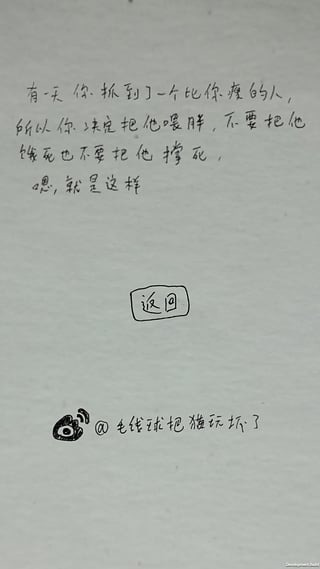 有一天你抓到了一个比你瘦的人，
所以你决定把他喂胖，不要把他
饿死也不要把他撑死，
嗯，就是这样
返回
@毛线球把猫玩坏了
Development Build